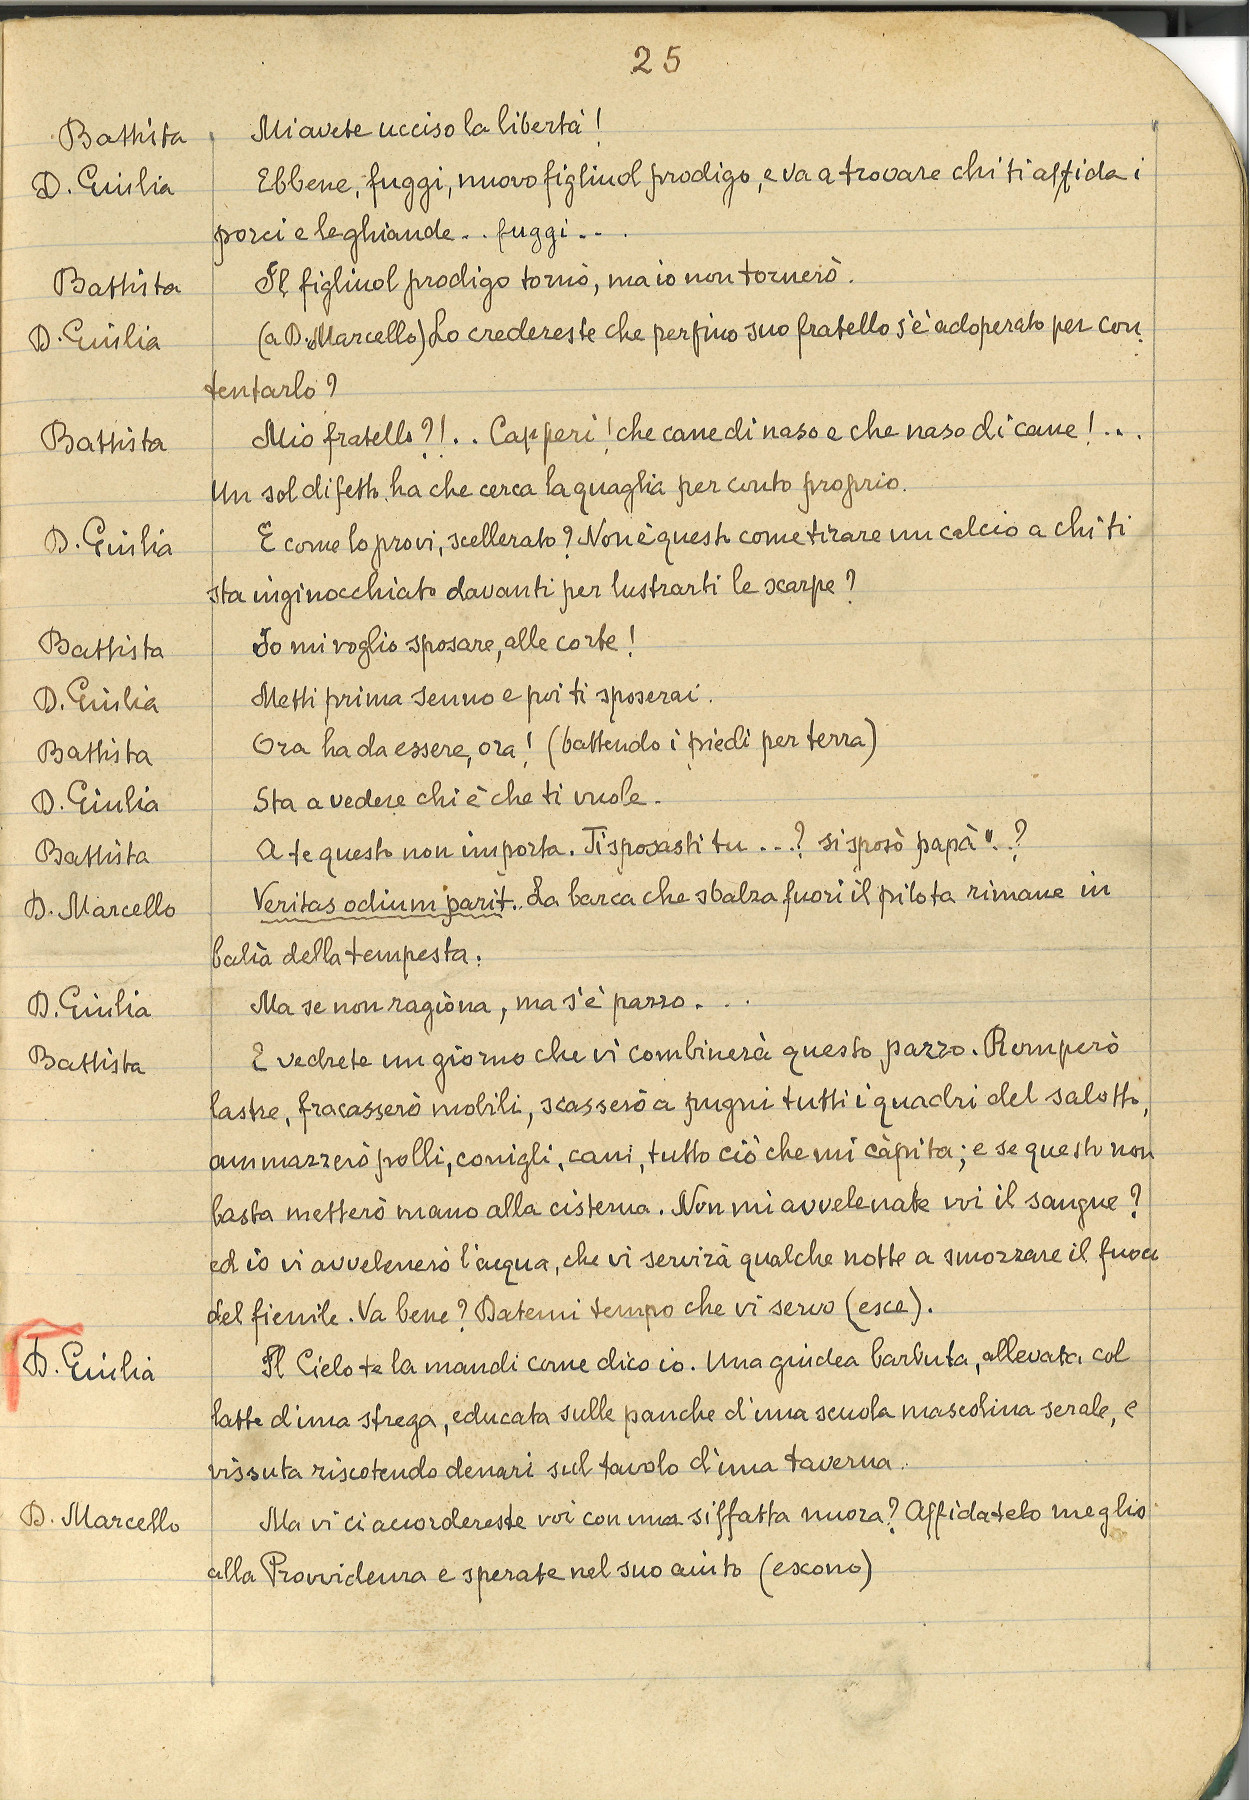 25
Battista Mi avete ucciso la libertà!
D. Giulia Ebbene, fuggi, nuovo figliuol prodigo, e va a trovare chi ti affida i
porci e le ghiande... fuggi...
Battista Il figliuol prodigo tornò, ma io non tornerò.
D. Giulia (a D. Marcello) Lo credereste che perfino suo fratello s'è adoperato per con
tentarlo?
Battista Mio fratello?!.. Capperi! che cane di naso e che naso di cane!...
Un sol difetto ha che cerca la quaglia per conto proprio.
D. Giulia E come lo provi, scellerato? Non è questo come tirare un calcio a chi ti
sta inginocchiato davanti per lustrarti le scarpe?
Battista Io mi voglio sposare, alle corte!
D. Giulia Metti prima senno e poi ti sposerai.
Battista Ora ha da essere, ora! (battendo i piedi per terra)
D. Giulia Sta a vedere chi è che ti vuole.
Battista A te questo non importa. Ti sposasti tu...? si sposò papà..?
D. Marcello Veritas odium parit. La barca che sbalza fuori il pilota rimane in
balìa della tempesta.
D. Giulia Ma se non ragiona, ma s'è pazzo...
Battista E vedrete un giorno che vi combinerà questo pazzo. Romperò
lastre, fracasserò mobili, scasserò a pugni tutti i quadri del salotto,
ammazzerò polli, conigli, cani, tutto ciò che mi càpita; e se questo non
basta metterò mano alla cisterna. Non mi avvelenate voi il sangue?
ed io vi avvelenerò l'acqua, che vi servirà qualche notte a smozzare il fuoco
del fienile. Va bene? Datemi tempo che vi servo (esce).
D. Giulia Il Cielo te la mandi come dico io. Una giudea barbuta, allevata col
latte d'una strega, educata sulle panche d'una scuola mascolina serale, e
vissuta riscotendo denari sul tavolo d'una taverna.
D. Marcello Ma vi ci accordereste voi con una siffatta nuora? Affidatelo meglio
alla Provvidenza e sperate nel suo aiuto (escono)